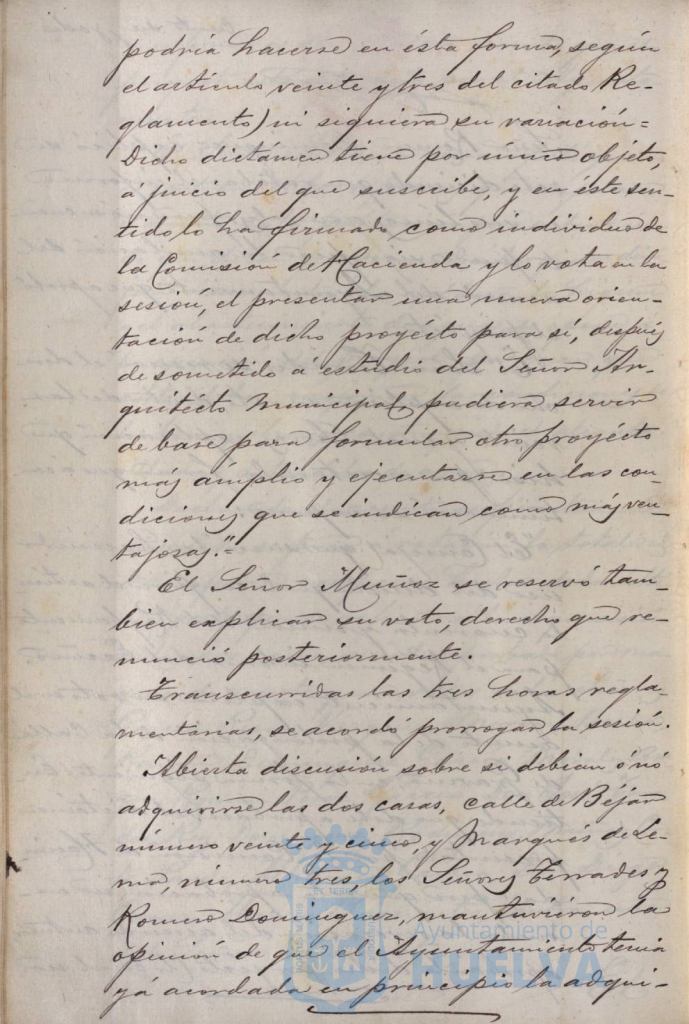 podria hacerse en ésta forma, según
el artículo veinte y tres del citado Re-
glamento) ni siquiera su variación=
Dicho dictámen tiene por único objeto,
á juicio del que suscribe, y en éste sen-
tido lo ha firmado como individuo de
la Comisión de Hacienda y lo vota en la
sesión, el presentar una nueva orien-
tación de dicho proyécto para sí, después
de sometido á estudio del Señor Ar-
quitécto Municipal, pudiera servir
de base para formular otro proyécto
más ámplio y ejecutarse en las con-
diciones que se indican como más ven-
tajosas."=
El Señor Muñoz se reservó tam-
bien explicar su voto, derecho que re-
nunció posteriormente.
Transcurridas las tres horas regla-
mentarias, se acordó prorrogar la sesión.
Abierta discusión sobre si debian ó nó
adquirirse las dos casas, calle de Béjar
número veinte y cinco, y Marqués de Le-
ma, número tres, los Señores Terrades y
Romero Dominguez, mantuvieron la
opinión de que el Ayuntamiento tenia
yá acordada en principio la adqui-
Ayuntamiento de
HUELVA